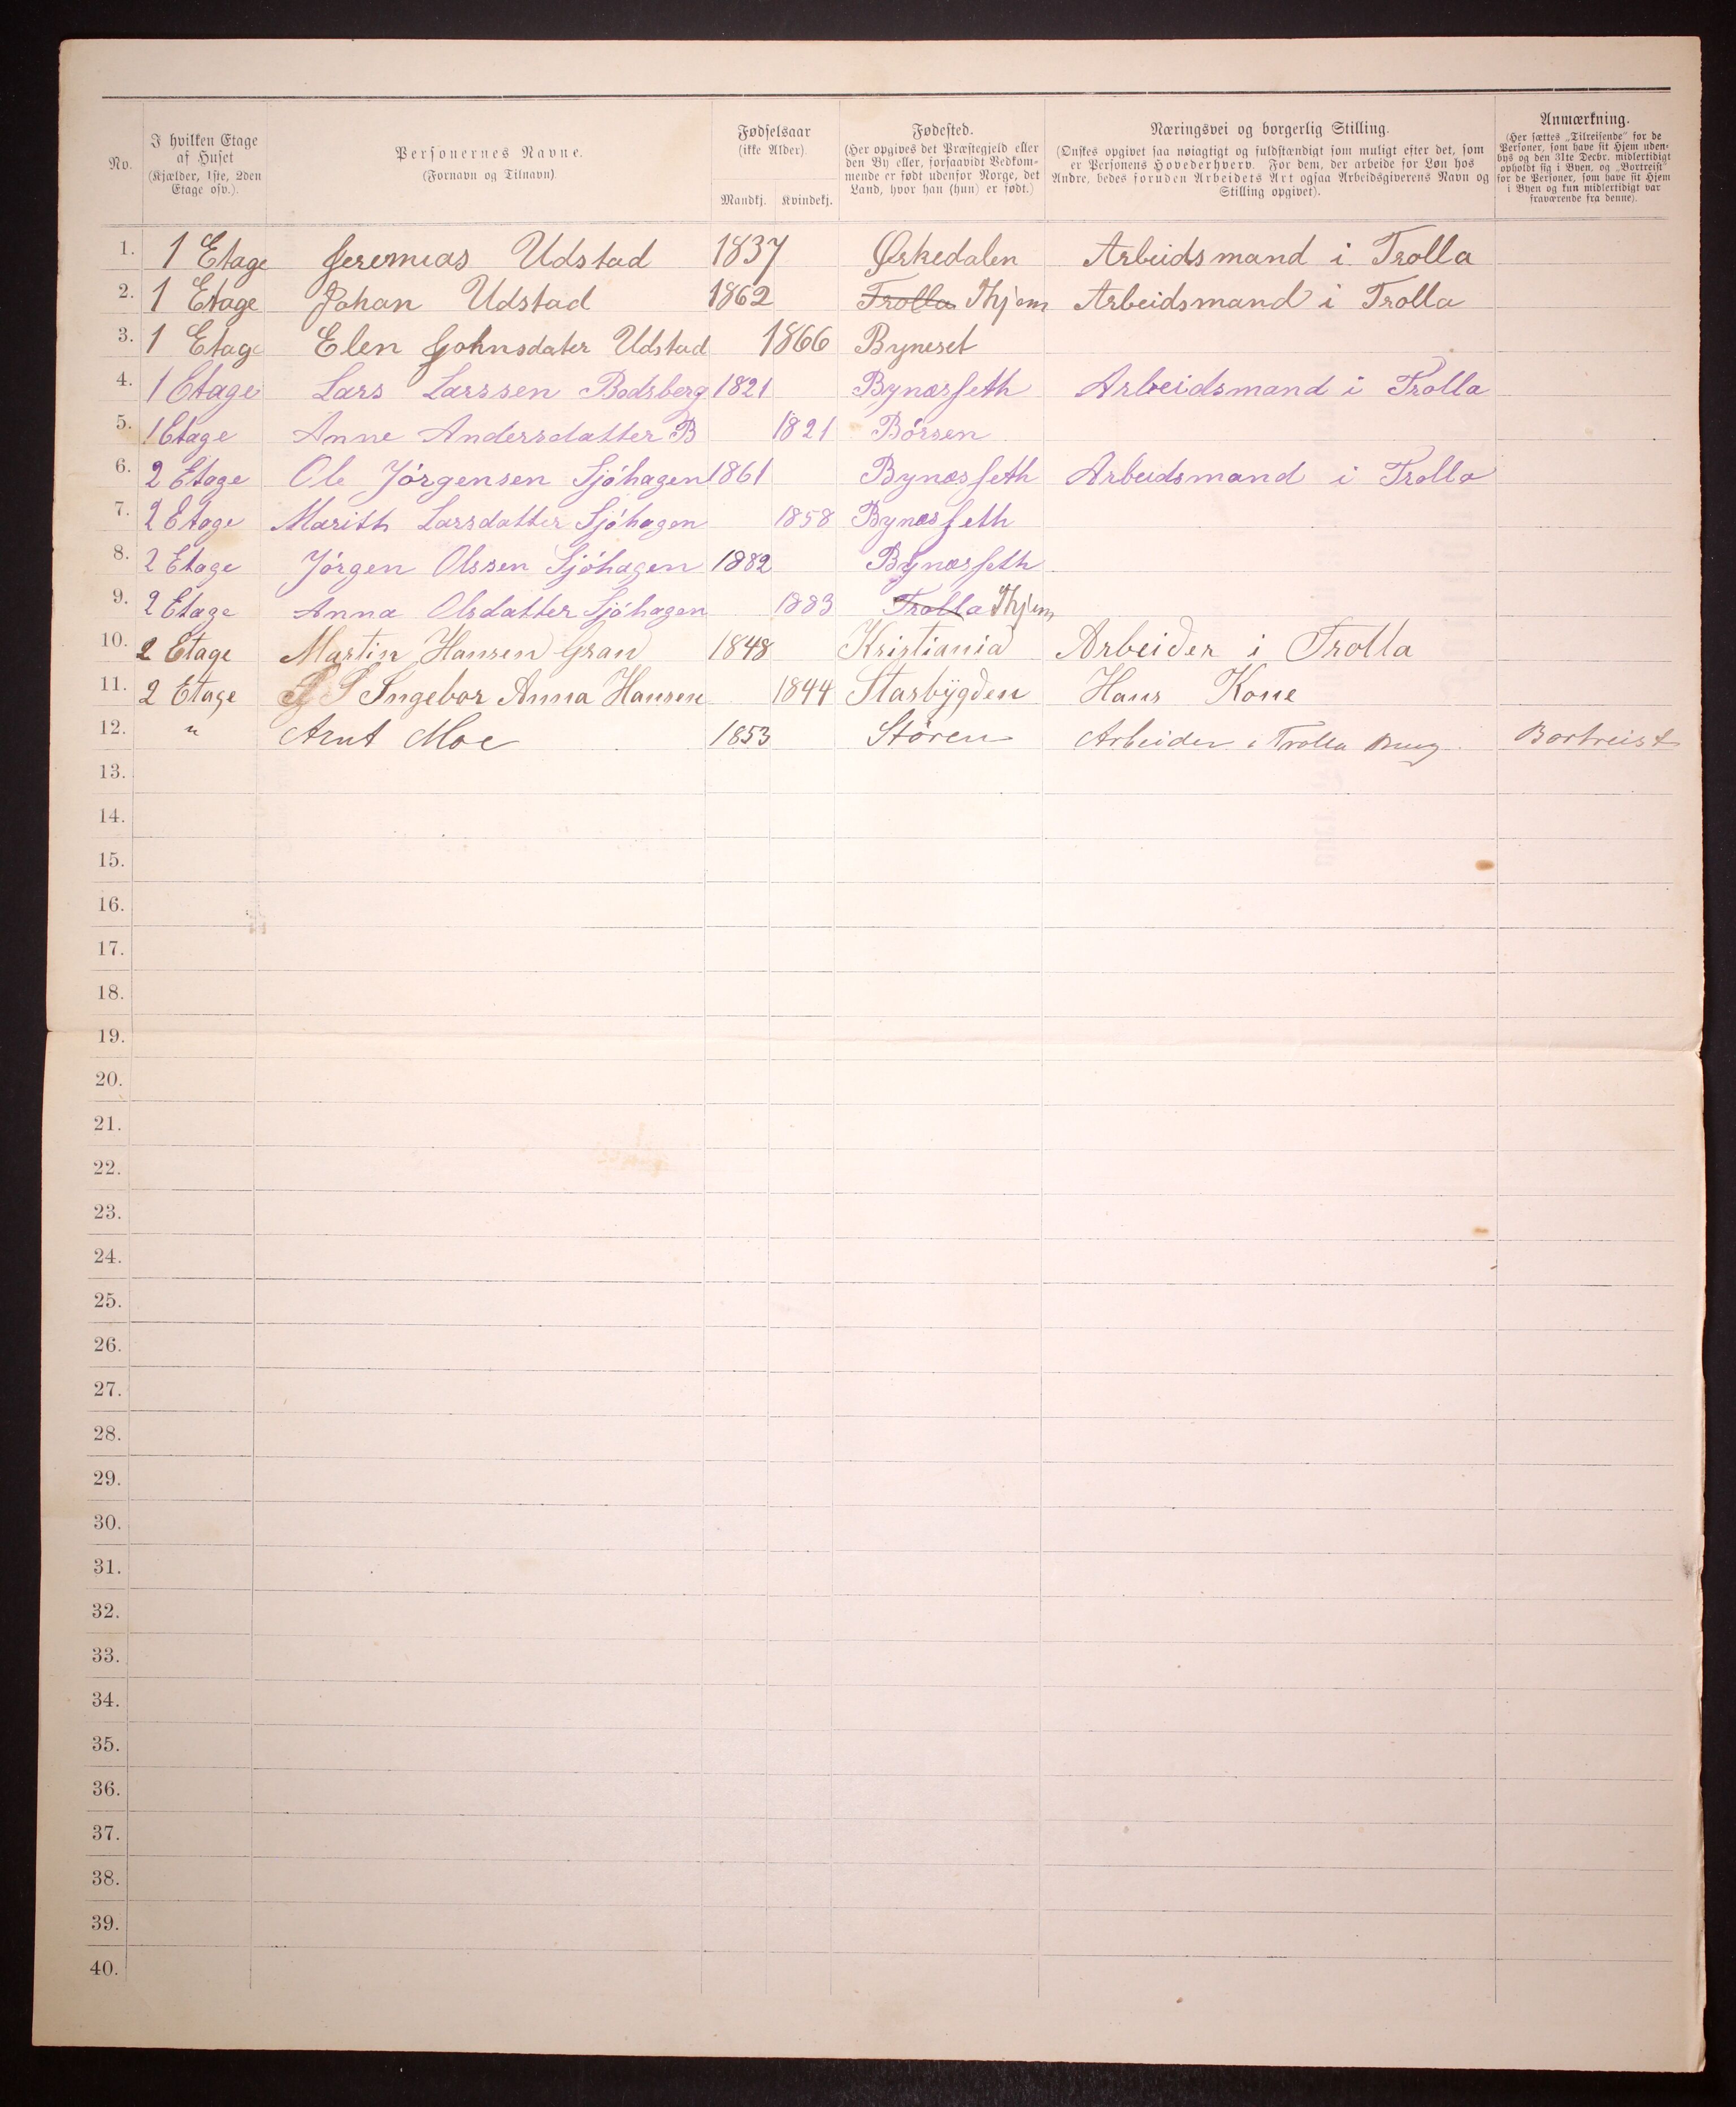 No.
I hvilken Etage
af Huset
(Kjælder, 1ste, 2den
Etage osv.).
Personernes Navne.
(Fornavn og Tilnavn)
Fødselsaar
(ikke Alder).
Mandkj. Kvindekj.
Fødested.
(Her opgives det Præstegjeld eller
den By eller, forsaavidt Vedkom-
mende er født udenfor Norge, det
Land, hvor han (hun) er født.)
Næringsvei og borgerlig Stilling.
(Ønskes opgivet saa nøiagtigt og fuldstændigt som muligt efter det, som
er Personens Hovederhverv. For dem, der arbeide for Løn hos
Andre, bedes foruden Arbeidets Art ogsaa Arbeidsgiverens Navn og
Stilling opgivet).
Anmærkning.
(Her sættes „Tilreisende“ for de
Personer, som have sit Hjem uden-
bys og den 31te Decbr. midlertidigt
opholdt sig i Byen, og „Bortreist“
for de Personer, som have sit Hjem
i Byen og kun midlertidigt var
fraværende fra denne).
1. 1 Etage Jeremias Udstad 1837 Ørkedalen Arbeidsmand i Trolla
2. 1 Etage Johan Udstad 1862 Trolla Thjem Arbeidsmand i Trolla
3. 1 Etage Elen Johnsdater Udstad 1866 Byneset
4. 1 Etage Lars Larssen Bodsberg 1821 Bynæsseth Arbeidsmand i Trolla
5. 1 Etage Anne Andersdatter B 1821 Börsen
6. 2 Etage Ole Jörgensen Sjöhagen 1861 Bynæsseth Arbeidsmand i Trolla
7. 2 Etage Marith Larsdatter Sjöhagen 1858 Bynæsseth
8. 2 Etage Jörgen Olssen Sjöhagen 1882 Bynæsseth
9. 2 Etage Anna Olsdatter Sjöhagen 1883 Trolla Thjem
10. 2 Etage Martin Hansen Gran 1848 Kristiania Arbeider i Trolla
11. 2 Etage Ingebor Anna Hansen 1844 Starbygden Hans Kone
12. " Arnt Moe 1853 Støren Arbeider i Trolla Brug Bortreist
13.
14.
15.
16.
17.
18.
19.
20.
21.
22.
23.
24.
25.
26.
27.
28.
29.
30.
31.
32.
33.
34.
35.
36.
37.
38.
39.
40.